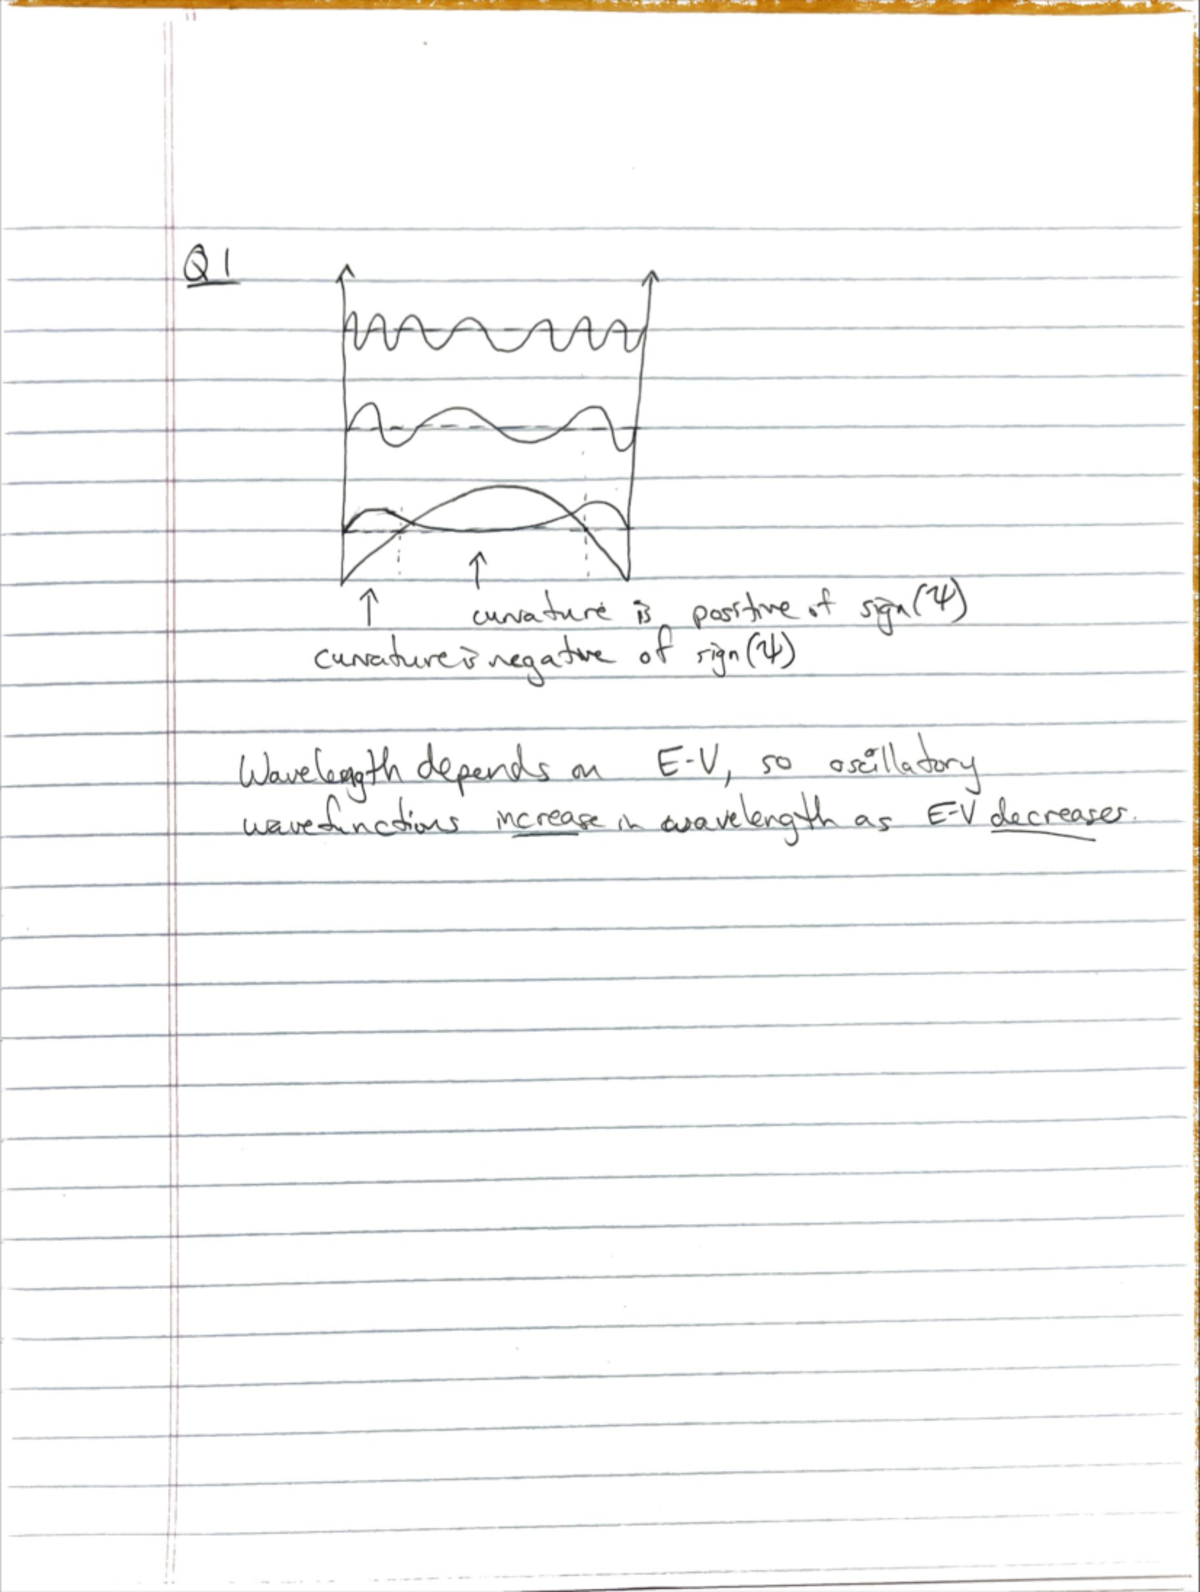 Q1
curvature is positive of sign(Ψ)
curvature is negative of sign(Ψ)
Wavelength depends on E-V, so oscillatory
wavefunctions increase in wavelength as E-V decreases.